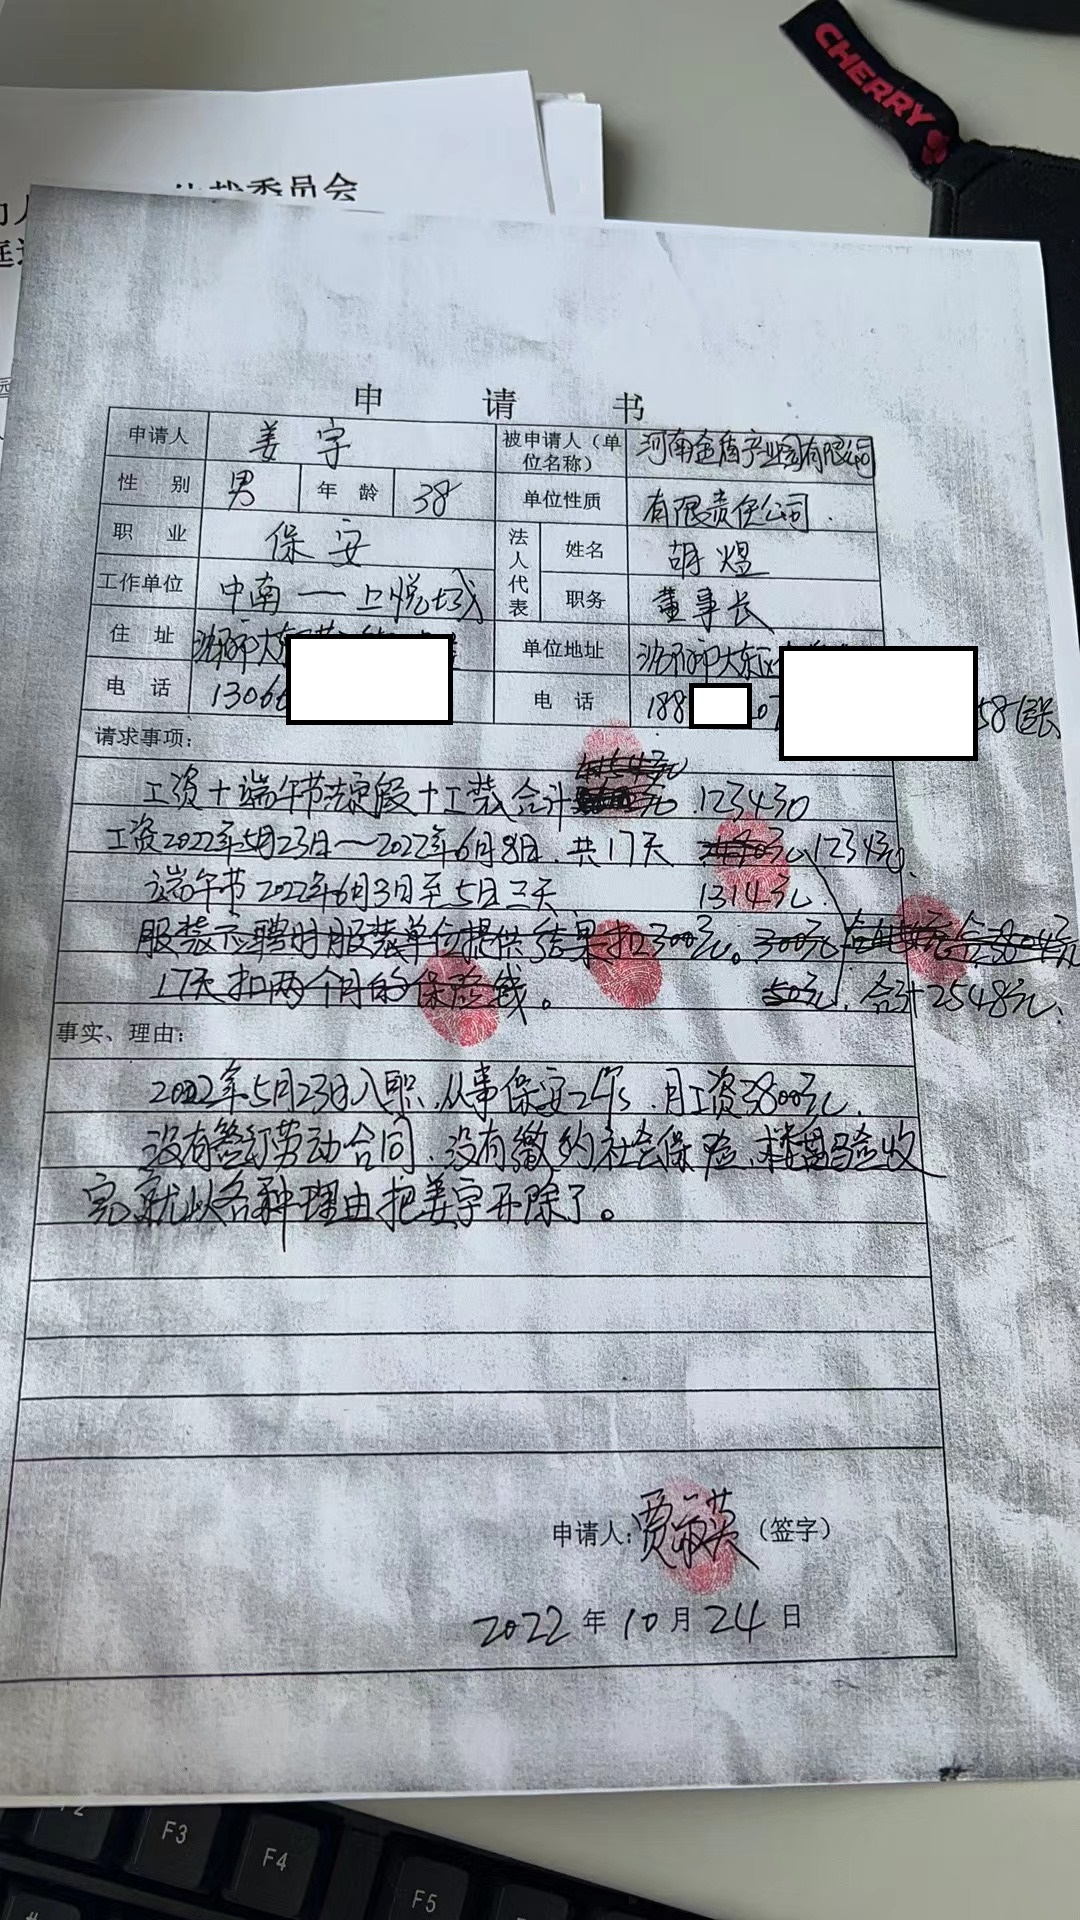 CHERRY
裁委员会
申 请 书
申请人 姜宇 被申请人（单位名称） 河南金盾产业园有限公司
性 别 男 年 龄 38 单位性质 有限责任公司
职 业 保安 法人代表 姓名 胡煜
工作单位 中南一上悦城 职务 董事长
住 址 沈阳市大东 单位地址 沈阳市大东区
电 话 1306 电 话 188 07 58 队长
请求事项：
工资+端午节法定假+工装合计 元 1234元
工资2022年5月23日～2022年6月8日.共17天 1234元.
端午节2022年6月3日至5日三天 1314元.
服装应聘时服装单位提供结果扣300元。300元
17天扣两个月的保险钱。 50元. 合计2548元.
事实、理由：
2022年5月23日入职.从事保安工作.月工资3800元.
没有签订劳动合同.没有缴纳社会保险.楼盘验收
完就以各种理由把姜宇开除了。
申请人：贾淑英（签字）
2022年10月24日
F2
F3
F4
F5